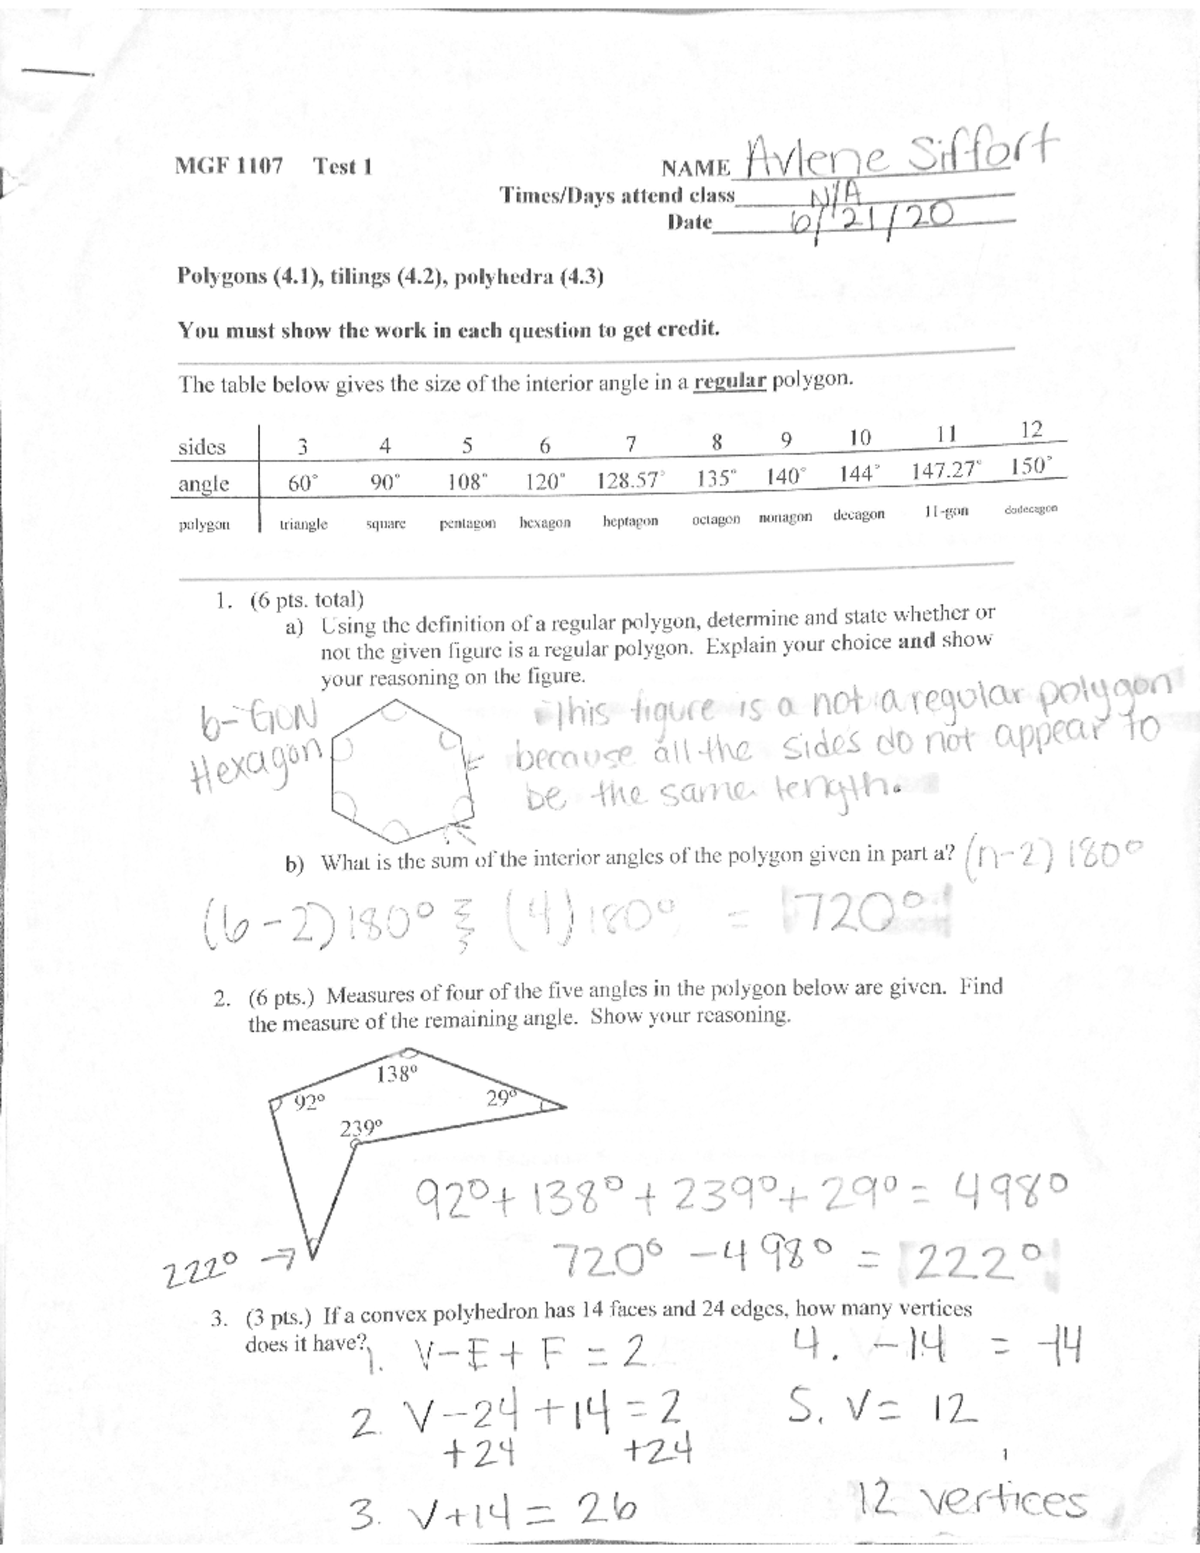 MGF 1107 Test 1
NAME Avlene Siffort
Times/Days attend class N/A
Date 6/21/20
Polygons (4.1), tilings (4.2), polyhedra (4.3)
You must show the work in each question to get credit.
The table below gives the size of the interior angle in a regular polygon.
sides 3 4 5 6 7 8 9 10 11 12
angle 60° 90° 108° 120° 128.57° 135° 140° 144° 147.27° 150°
polygon triangle square pentagon hexagon heptagon octagon nonagon decagon 11-gon dodecagon
1. (6 pts. total)
a) Using the definition of a regular polygon, determine and state whether or
not the given figure is a regular polygon. Explain your choice and show
your reasoning on the figure.
6-GON
Hexagon
This figure is a not a regular polygon
because all the sides do not appear to
be the same length.
b) What is the sum of the interior angles of the polygon given in part a? (n-2) 180°
(6-2) 180° (4) 180° = 720°
2. (6 pts.) Measures of four of the five angles in the polygon below are given. Find
the measure of the remaining angle. Show your reasoning.
138°
92°
29°
239°
92° + 138° + 239° + 29° = 498°
720° - 498° = 222°
222° →
3. (3 pts.) If a convex polyhedron has 14 faces and 24 edges, how many vertices
does it have?
1. V-E+F = 2
2. V-24+14=2
+24 +24
3. V+14 = 26
4. -14 = -14
5. V= 12
12 vertices